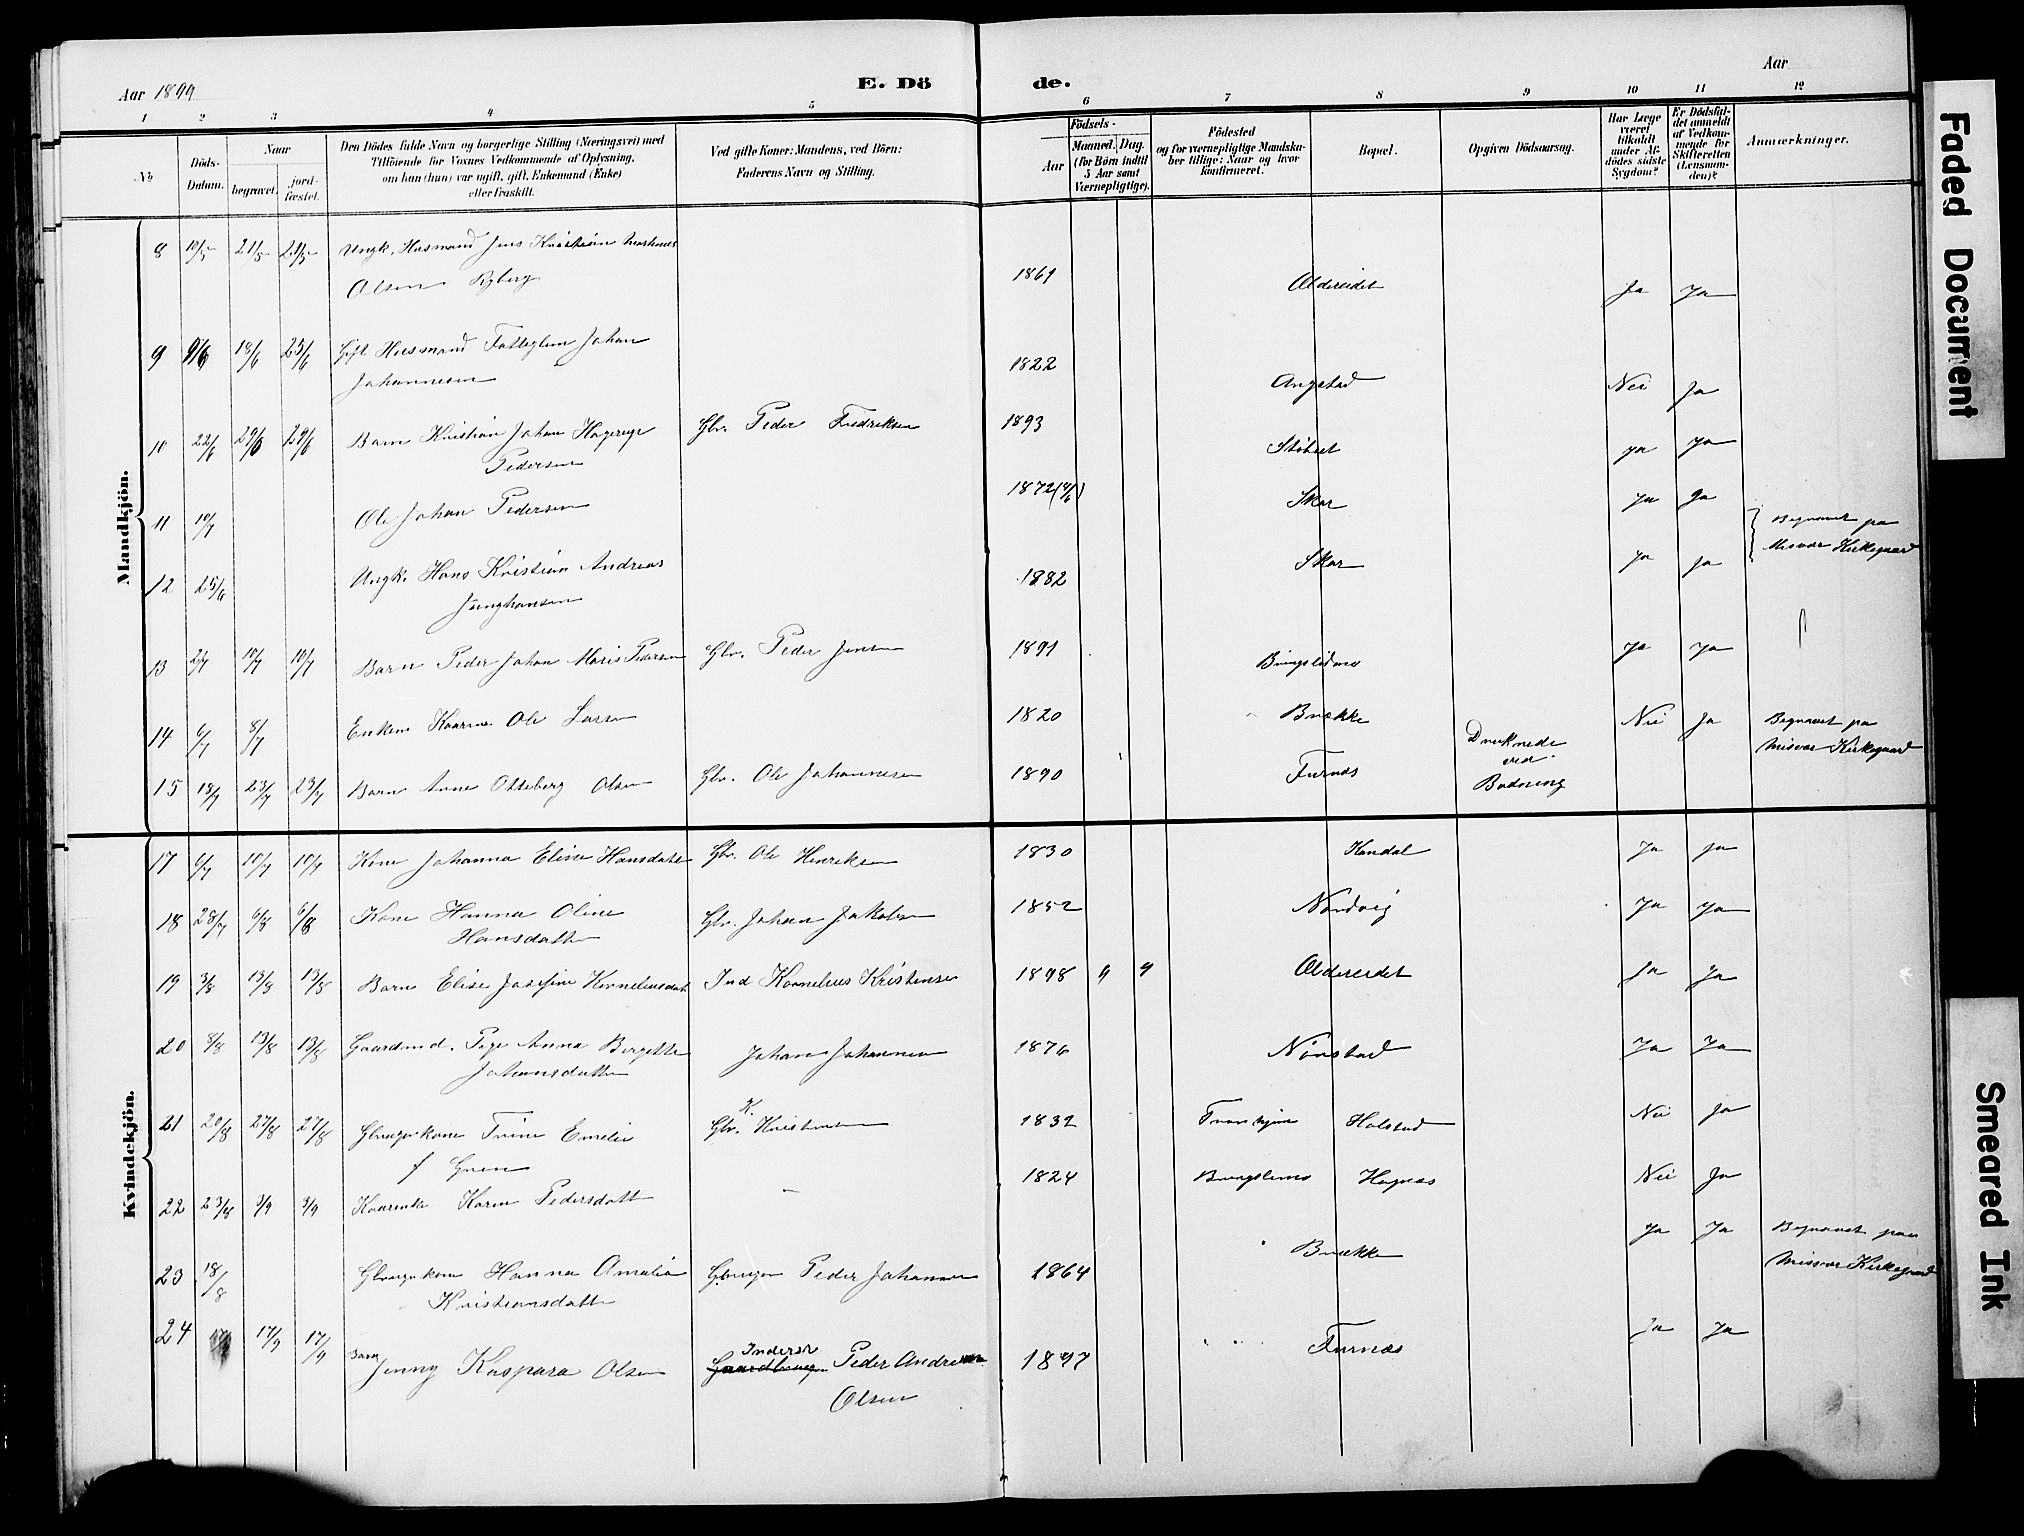 Aar 1899
E. Dö de.
Aar
1 2 3 4 5 6 7 8 9 10 11 12
No
Döds-Datum.
Naar
begravet.
jord-fæstet.
Den Dödes fulde Navn og borgerlige Stilling (Næringsvei) med
Tilföiende for Voxnes Vedkommende af Oplysning,
om han (hun) var ugift, gift, Enkemand (Enke)
eller fraskilt.
Ved gifte Koner: Mandens, ved Börn:
Faderens Navn og Stilling.
Födsels-
Aar
Maaned. Dag.
(for Börn indtil
5 Aar samt
Værnepligtige).
Födested
og for værnepligtige Mandska-
ber tillige: Naar og hvor
konfirmeret.
Bopæl.
Opgiven Dödsaarsag.
Har Læge
været
tilkaldt
under Af-
dödes sidste
Sygdom?
Er Dödsfal-
det anmeldt
af Vedkom-
mende for
Skifteretten
(Lensman-
den)?
Anmærkninger.
Mandkjön.
8 10/5 21/5 21/5 Ungk. Husmand Jens Kristian
Olsen Ryberg 1861 Oldereidet Ja Ja
9 18/6 25/6 Gift Husmand Fattiglem Johan
Johannesen 1822 Angstad Nei Ja
10 22/6 29/6 29/6 Barn Kristian Johan Hagerup Gbr. Peder Fredriksen 1893 Ja Ja
Pedersen
11 10/7 Ole Johan Pedersen 1872 Skar Ja Ja Begravet paa
12 25/6 Ungk. Hans Kristian Andreas 1882 Skar Ja Ja Misvær Kirkegaard
Junghansen
13 2/7 10/7 10/7 Barn Peder Johan Maris Pedersen Gbr. Peder Jensen 1891 Ja Ja
14 6/7 8/7 Enkem. Kaarm. Ole Larsen 1820 Brække Nei Ja Begravet paa
Misvær Kirkegaard
15 18/7 23/7 23/7 Barn Anne Otteberg Olsen Gbr. Ole Johannesen 1890 Furnes Druknede
ved
Badning
Kvindekjön.
17 6/7 10/7 10/7 Kone Johanna Elise Hansdatter Gbr. Ole Henriksen 1830 Kandal Ja Ja
18 28/7 6/8 6/8 Kone Hanna Oline Gbr. Johan Jakobsen 1852 Nordvig Ja Ja
Hansdatter
19 3/8 13/8 13/8 Barn Elise Josefine Korneliusdatt Ind Kornelius Kristensen 1898 9 9 Oldereidet Ja Ja
20 8/8 13/8 13/8 Gaardmd. Pige Anna Bergitte Johan Johannesen 1876 Ja Ja
Johansdatter
21 20/8 27/8 27/8 Gbrugerkone Trine Emelie Gbr. K. Kristensen 1832 Halstad Nei Ja
f Green
22 23/8 3/9 3/9 Kaarenke Karen Pedersdatt 1824 Hognes Nei Ja
23 18/8 Gbrugerkone Hanna Amalia Gbruger Peder Johansen 1864 Brække Ja Ja Begravet paa
Kristiansdatter Misvær Kirkegaard
24 17/9 17/9 Barn Jenny Kaspara Olsen Inderst Gaardbruger Peder Andreas 1897 Furnes Ja Ja
Olsen
Faded Document
Smeared Ink